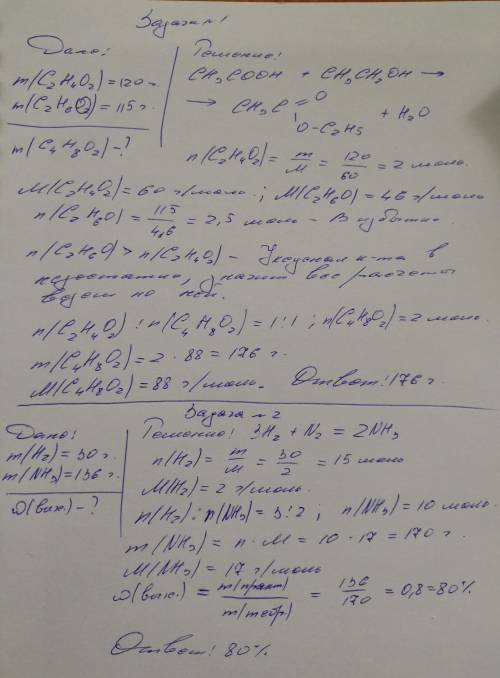 Задача №1
Дано:
m(C2H4O2) = 120 г.
m(C2H6O2) = 115 г.
m(C4H8O2) - ?
Решение:
CH3COOH + CH3CH2OH →
→ CH3C = O
O-C2H5 + H2O
n(C2H4O2) = m/M = 120/60 = 2 моль.
M(C2H4O2) = 60 г/моль.; M(C2H6O) = 46 г/моль
n(C2H6O) = 115/4,6 = 2,5 моль - В избытке.
n(C2H6O) > n(C2H4O2) - Уксусная к-та в
недостатке, значит все расчёты
ведем по ней.
n(C2H4O2) : n(C4H8O2) = 1:1 ; n(C4H8O2) = 2 моль.
m(C4H8O2) = 2 · 88 = 176 г.
M(C4H8O2) = 88 г/моль. Ответ: 176 г.
Задача №2
Дано:
m(H2) = 30 г.
m(NH3) = 136 г.
ω(вых.) - ?
Решение: 3H2 + N2 = 2NH3
n(H2) = m/M = 30/2 = 15 моль
M(H2) = 2 г/моль.
n(H2) : n(NH3) = 3:2 ; n(NH3) = 10 моль.
m(NH3) = n · M = 10 · 17 = 170 г.
M(NH3) = 17 г/моль
ω(вых.) = m(практ)/m(теор) = 136/170 = 0,8 = 80%
Ответ: 80%